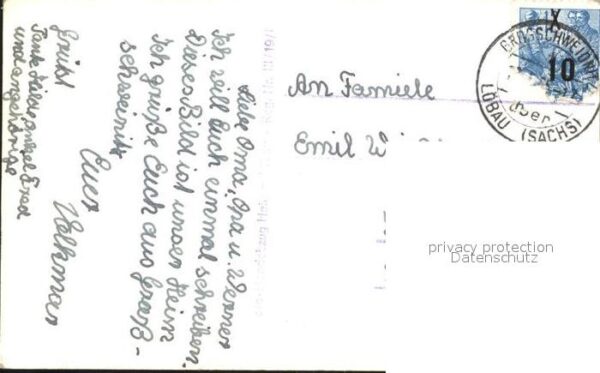 Liebe Oma, Opa u. Werner
Ich will Euch einmal schreiben.
Dieses Bild ist unser Heim
Ich grüße Euch aus Groß-
schweinitz
Euer
Volkmar
Grüßt
Tante
und angehörige
An Famiele
Emil
GROSSCHWEIDNITZ
über
LÖBAU (SACHS)
10
X
privacy protection
Datenschutz